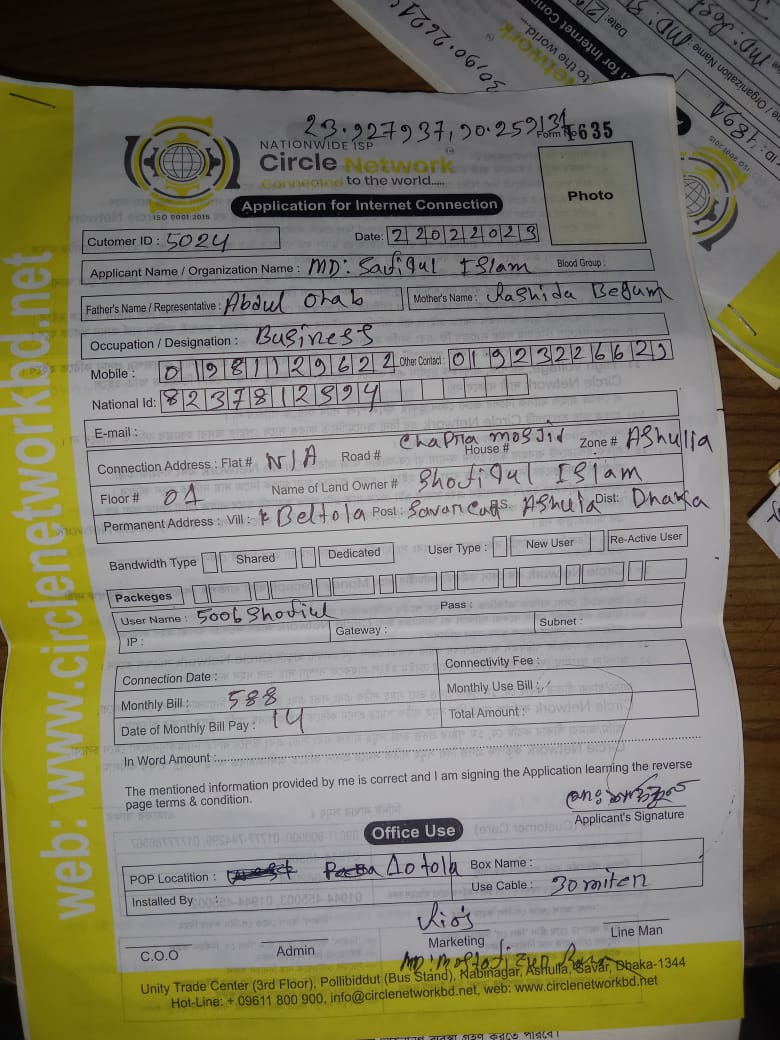 23.927937, 90.259131
Form No 1635
NATIONWIDE ISP
Circle Network
Connected to the world.....
ISO 9001:2015
Application for Internet Connection
Photo
Cutomer ID : 5024
Date: 22022023
Applicant Name / Organization Name : MD: Safiqul Islam Blood Group :
Father's Name / Representative : Abdul Ohab Mother's Name : Rashida Begum
Occupation / Designation : Business
Mobile : 01981129622 Other Contact :
National Id:
E-mail :
Connection Address : Flat # N/A Road # Chapra mosjid House # Zone # Ashulia
Floor # 01 Name of Land Owner # Shofiqul Islam
Permanent Address : Vill : Beltola Post : Savar Dist: Dhaka
Bandwidth Type Shared Dedicated User Type : New User Re-Active User
Packeges
User Name : Pass :
IP : Gateway : Subnet :
Connection Date : Connectivity Fee :
Monthly Bill : 588 Monthly Use Bill :
Date of Monthly Bill Pay : 14 Total Amount :
In Word Amount :
The mentioned information provided by me is correct and I am signing the Application learning the reverse
page terms & condition.
Applicant's Signature
Office Use
POP Locatition : Box Name :
Installed By : Use Cable : 30 miter
Marketing
Line Man
C.O.O Admin
Unity Trade Center (3rd Floor), Pollibiddut (Bus Stand), Nabinagar, Ashulla, Savar, Dhaka-1344
Hot-Line: + 09611 800 900, info@circlenetworkbd.net, web: www.circlenetworkbd.net
web: www.circlenetworkbd.net